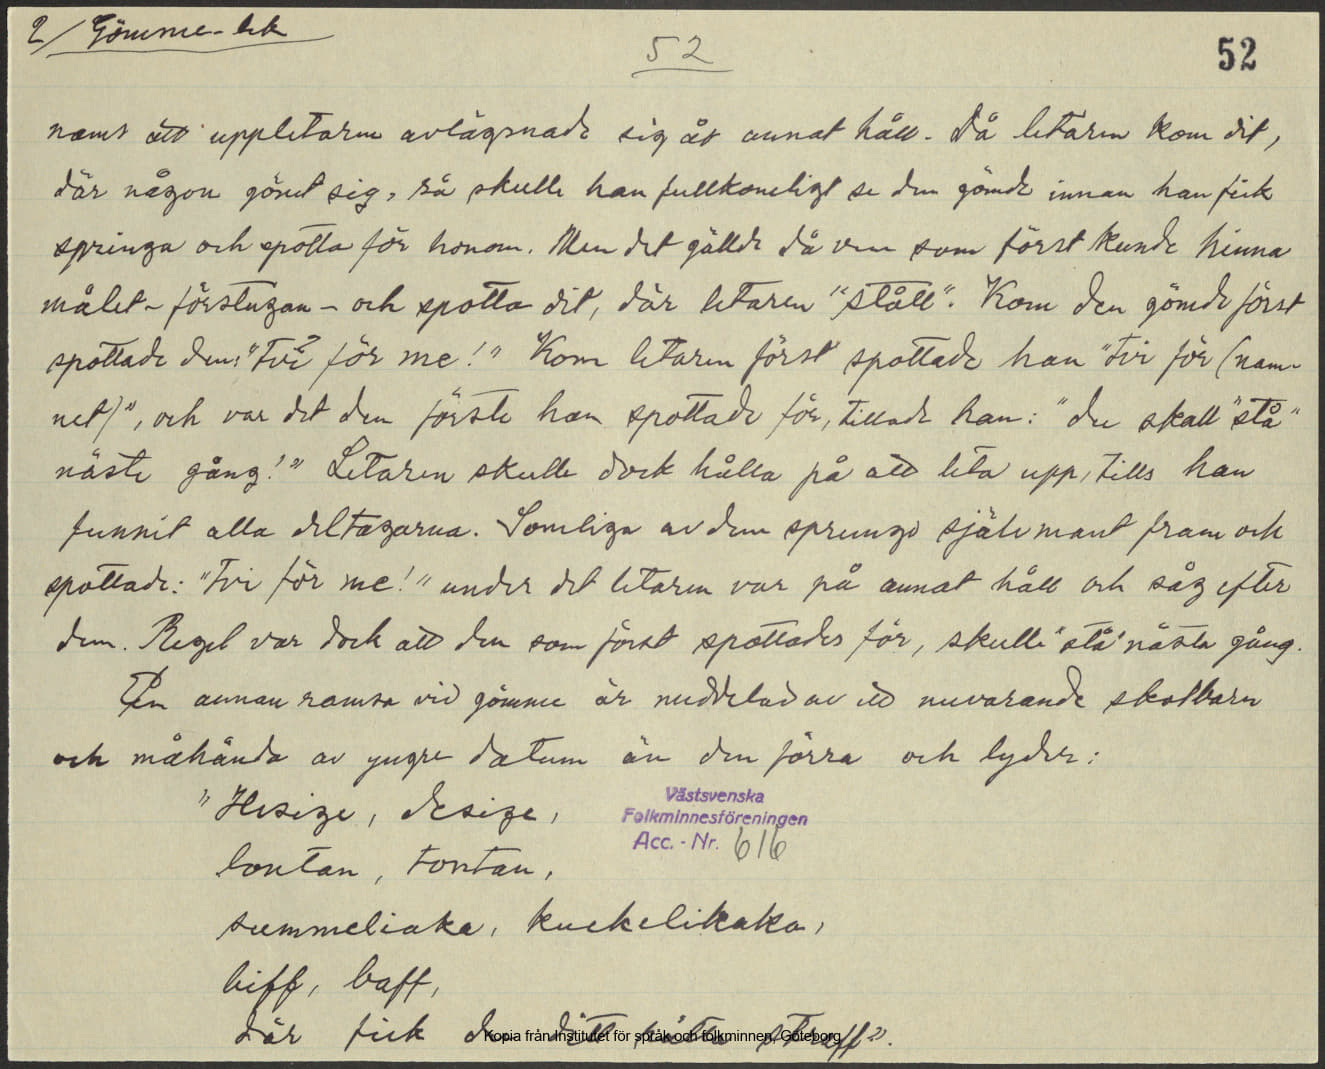 2/ Gömme-lek
52
52
att uppletaren avlägsnade sig åt annat håll. Då letaren kom dit,
där någon gömt sig, så skulle han fullkomligt se den gömde innan han fick
springa och spotta för honom. Men det gällde då vem som först kunde hinna
målet - förstugan - och spotta dit, där letaren "stått". Kom den gömde först
spottade den: "Tvi för me!" Kom letaren först spottade han "Tvi för (nam-
net)", och var det den förste han spottade för, tillade han: "du skall "stå"
näste gång!" Letaren skulle dock hålla på att leta upp, tills han
funnit alla deltagarna. Somliga av dem sprungo självmant fram och
spottade: "Tvi för me!" under det letaren var på annat håll och såg efter
dem. Regel var dock att den som först spottades för, skulle "stå" nästa gång.
En annan ramsa vid gömme är meddelad av ett nuvarande skolbarn
och måhända av yngre datum än den förra och lyder:
"Hesige, desige,
lontan, tontan,
summeliaka, kuckelikaka,
biff, baff,
där fick du ditt sista straff".
Västsvenska
Folkminnesföreningen
Acc. - Nr. 616
Kopia från Institutet för språk och folkminnen, Göteborg